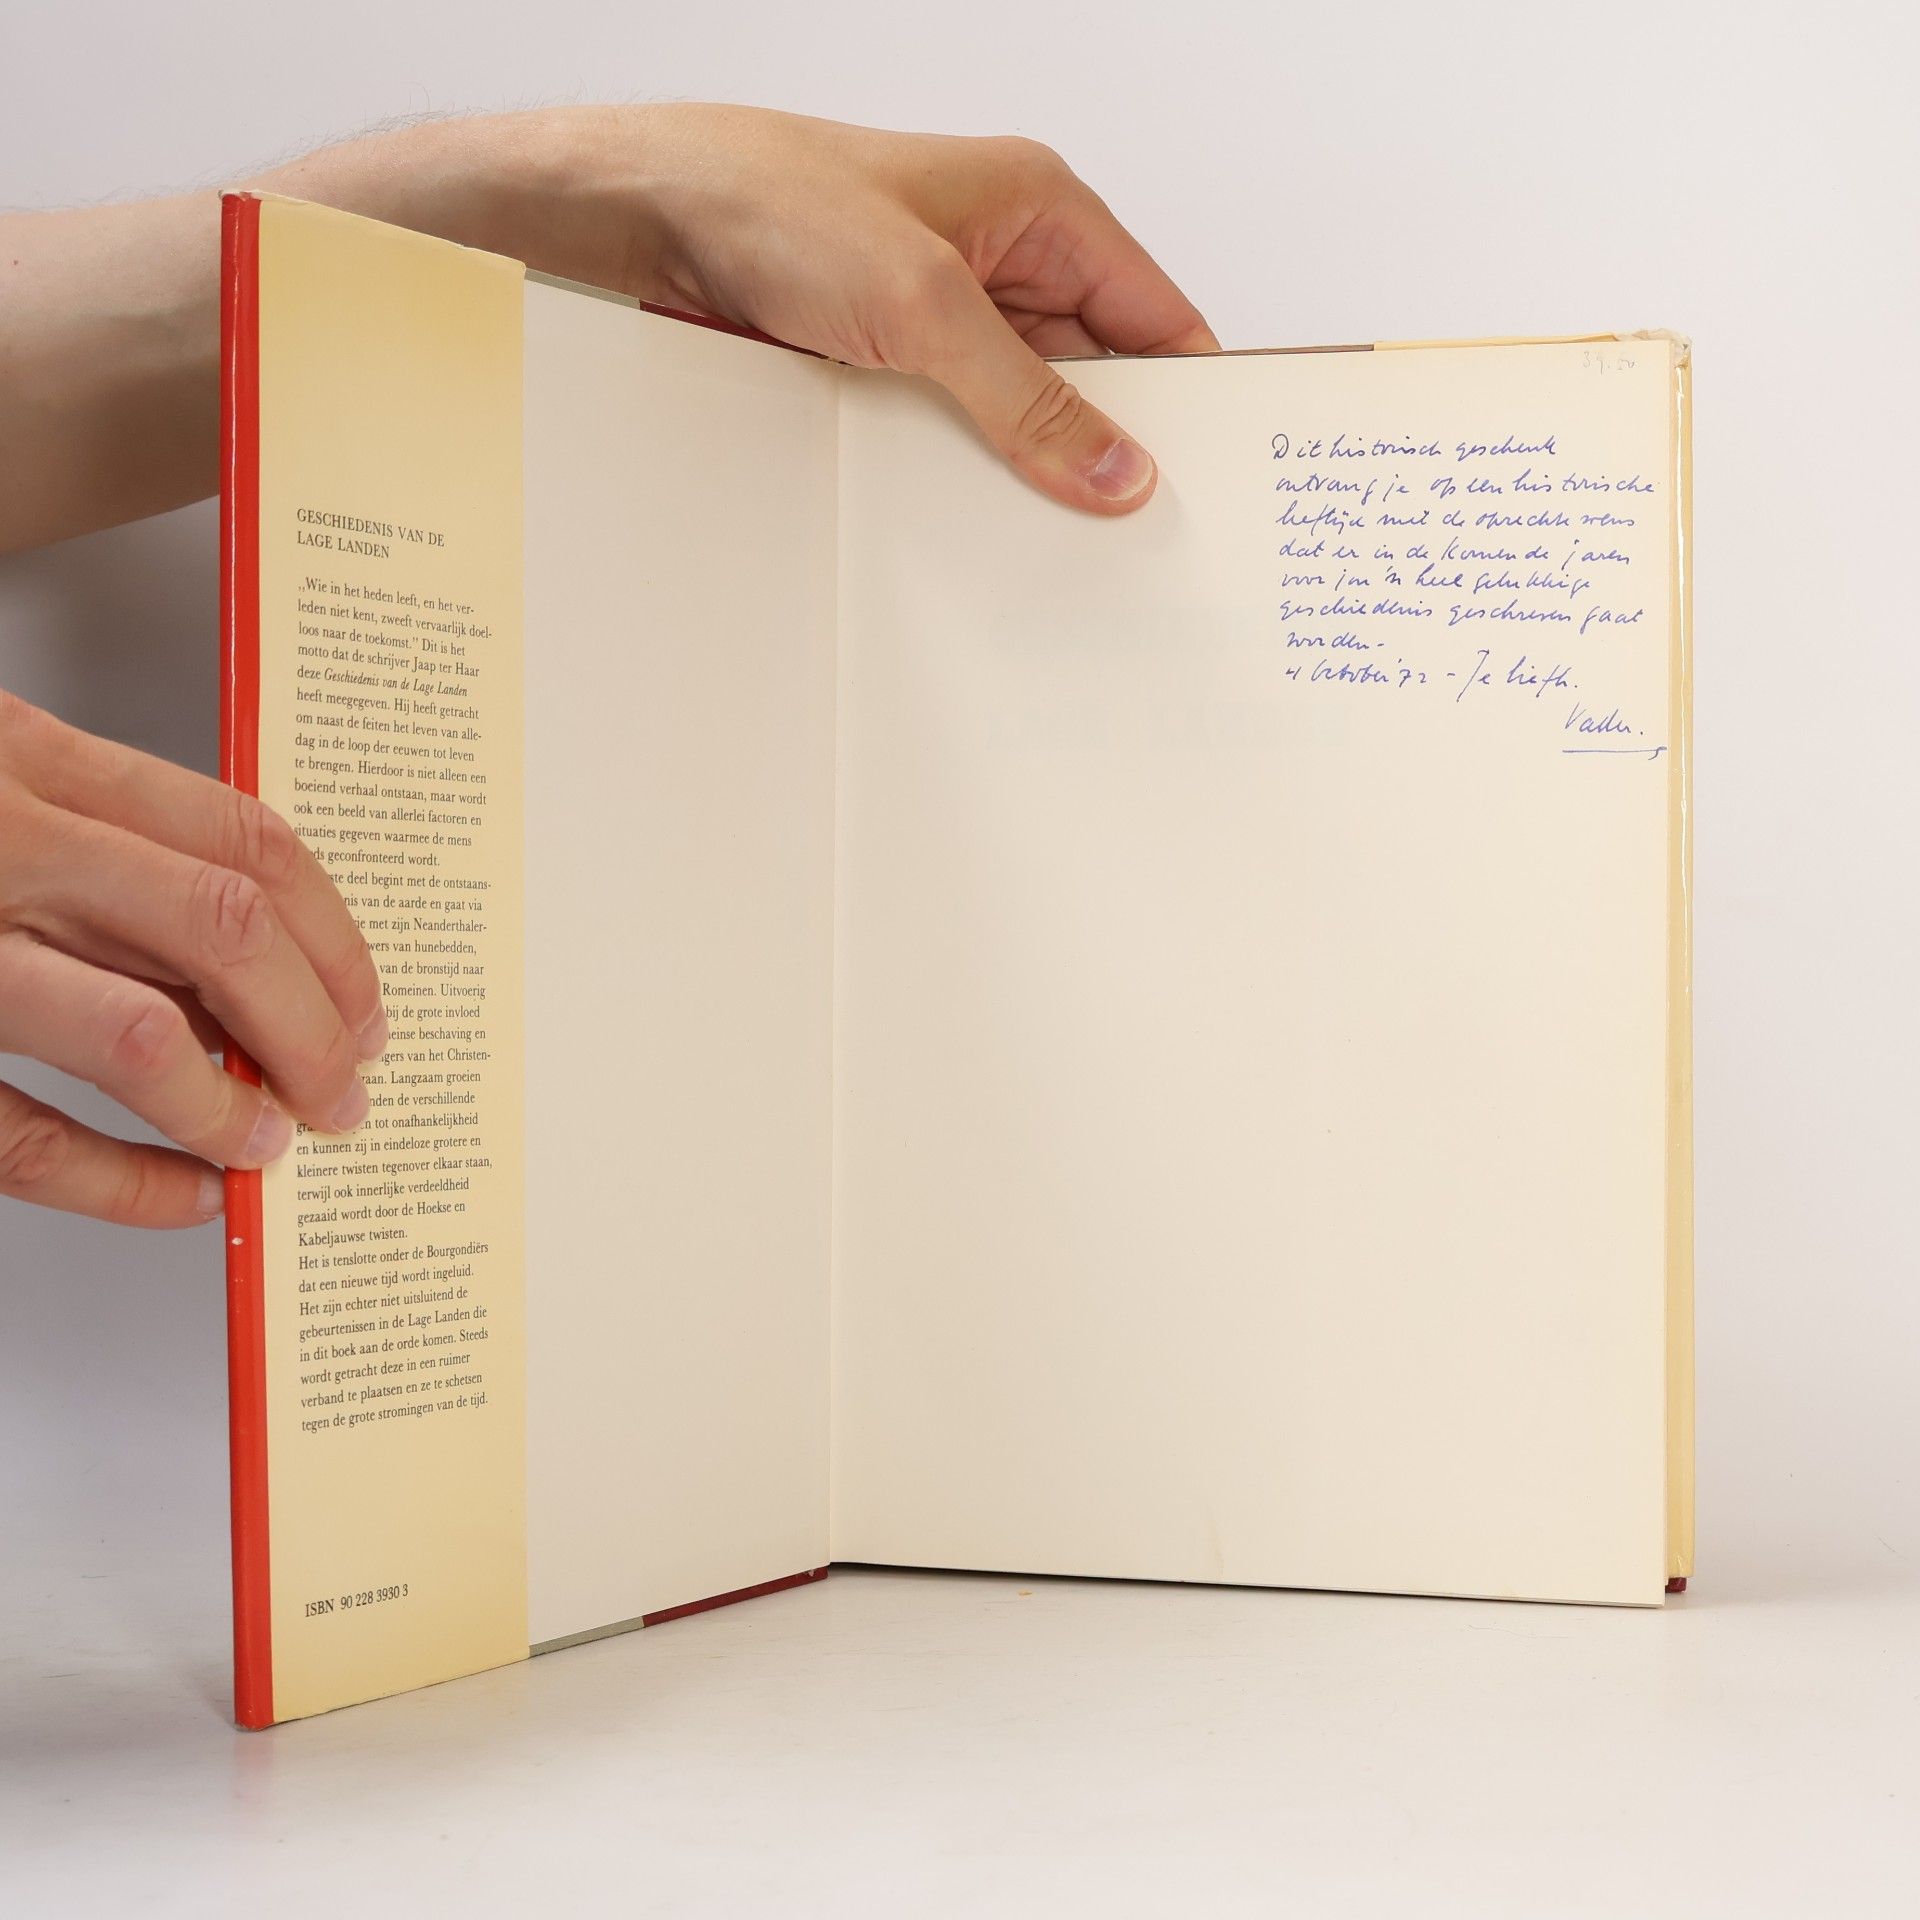 GESCHIEDENIS VAN DE
LAGE LANDEN
,,Wie in het heden leeft, en het ver-
leden niet kent, zweeft vervaarlijk doel-
loos naar de toekomst.” Dit is het
motto dat de schrijver Jaap ter Haar
deze Geschiedenis van de Lage Landen
heeft meegegeven. Hij heeft getracht
om naast de feiten het leven van alle-
dag in de loop der eeuwen tot leven
te brengen. Hierdoor is niet alleen een
boeiend verhaal ontstaan, maar wordt
ook een beeld van allerlei factoren en
situaties gegeven waarmee de mens
geconfronteerd wordt.
deel begint met de ontstaans-
van de aarde en gaat via
met zijn Neanderthaler-
van hunebedden,
van de bronstijd naar
Romeinen. Uitvoerig
bij de grote invloed
beschaving en
van het Christen-
Langzaam groeien
de verschillende
tot onafhankelijkheid
en kunnen zij in eindeloze grotere en
kleinere twisten tegenover elkaar staan,
terwijl ook innerlijke verdeeldheid
gezaaid wordt door de Hoekse en
Kabeljauwse twisten.
Het is tenslotte onder de Bourgondiërs
dat een nieuwe tijd wordt ingeluid.
Het zijn echter niet uitsluitend de
gebeurtenissen in de Lage Landen die
in dit boek aan de orde komen. Steeds
wordt getracht deze in een ruimer
verband te plaatsen en ze te schetsen
tegen de grote stromingen van de tijd.
ISBN 90 228 3930 3
39.50
Dit historisch geschenk
ontvang je op een historische
leeftijd met de oprechte wens
dat er in de komende jaren
voor jou 'n heel gelukkige
geschiedenis geschreven gaat
worden -
4 October '72 - Je liefh.
Vader.